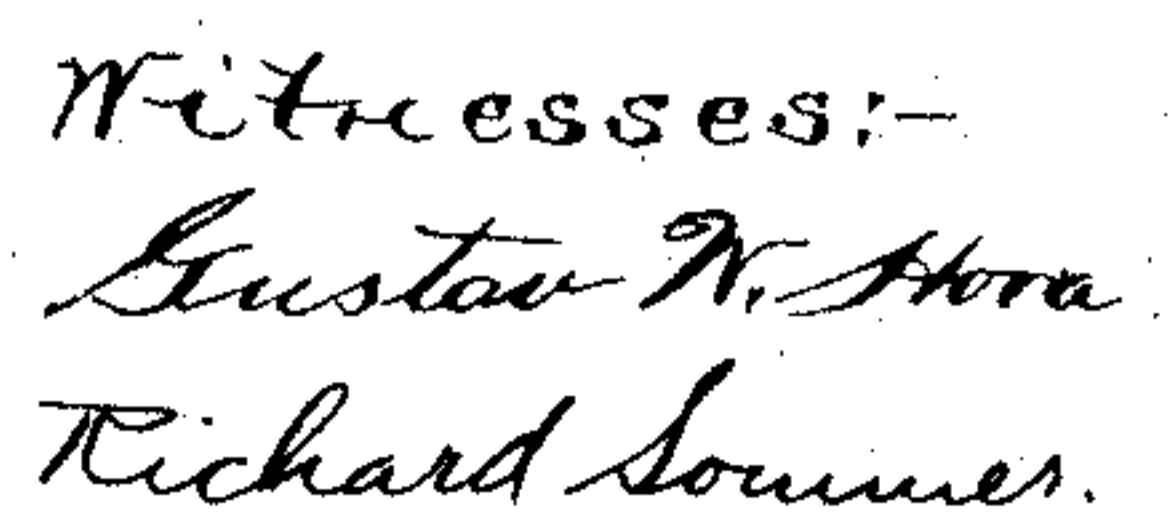 Witnesses:-
Gustav W. Hora.
Richard Sommer.